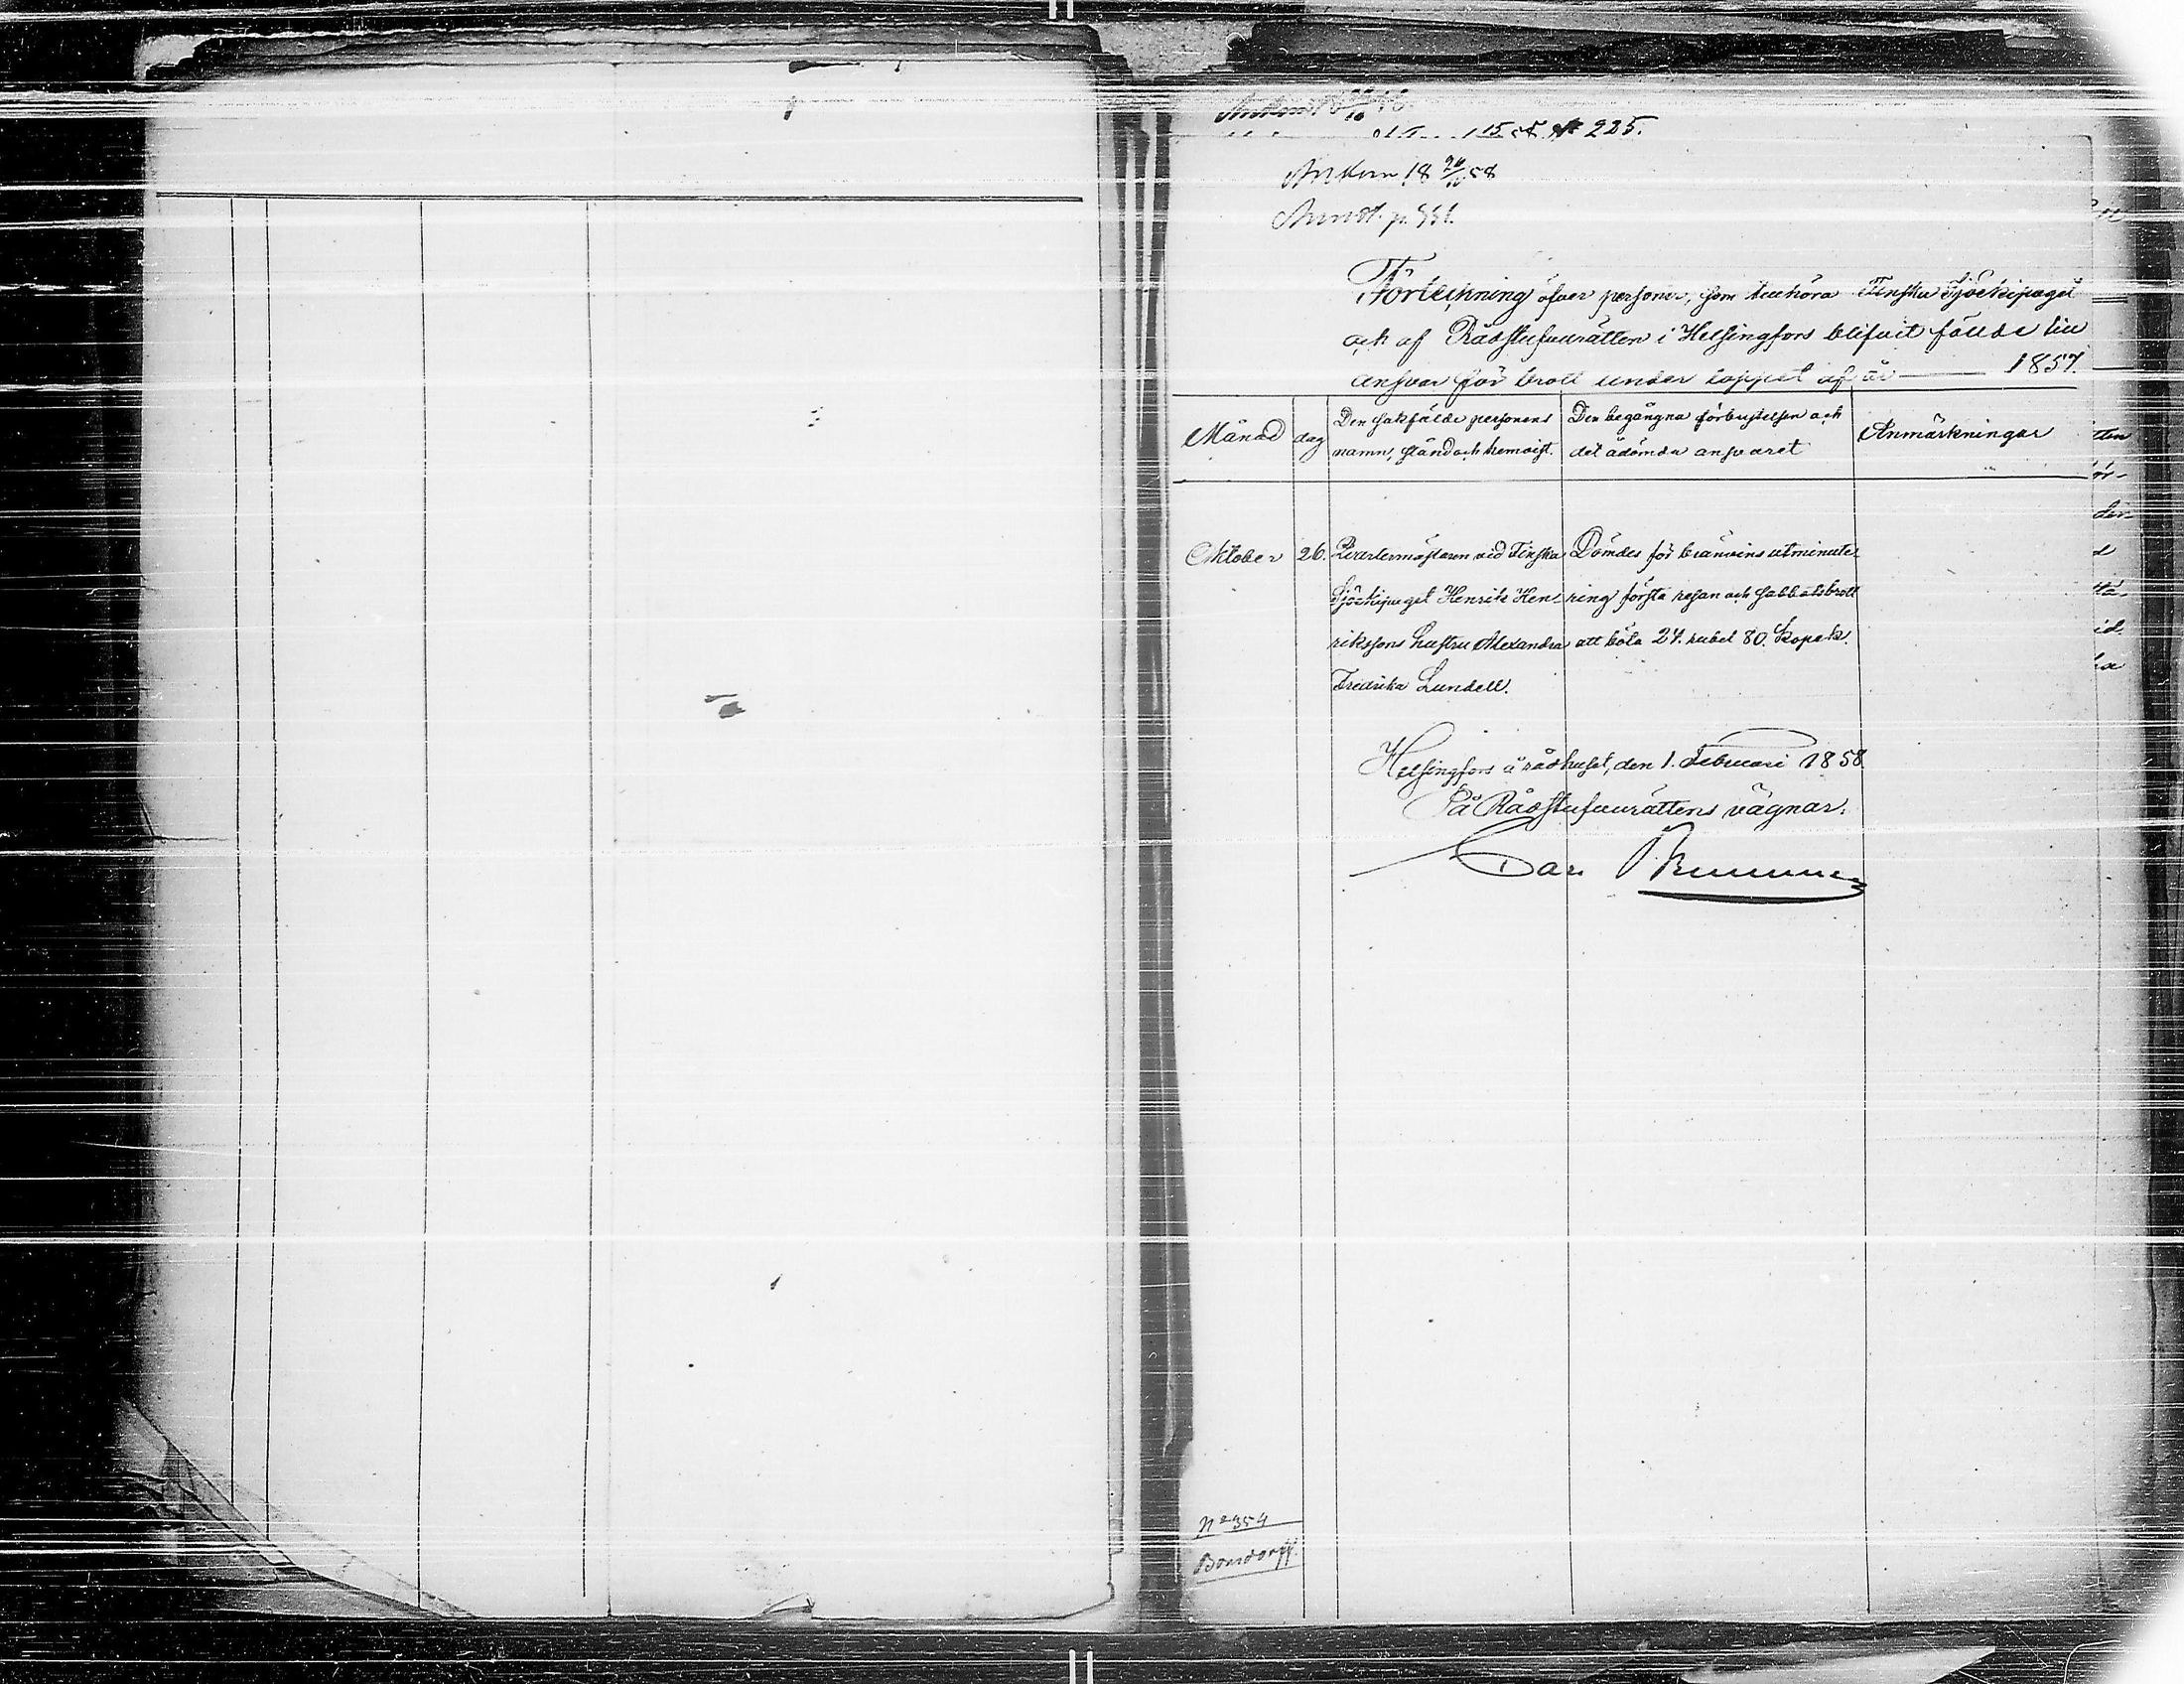 № 225.
Ank. d. 18 24/11 58
Förteckning öfver personer, som tillhöra Finska Sjöekipaget
och af Rådstufvurätten i Helsingfors blifvit fällde till
ansvar för brott under loppet af år — 1857.
Månad dag Den sakfälde personens namn, stånd och hemvist. Den begångna förbrytelsen och det ådömda ansvaret Anmärkningar
Oktober 26. Qvartermästaren vid Finska Dömdes för bränvins utminute-
Sjöekipaget Henrik Hen- ring första resan och sabbatsbrott
rikssons hustru Alexandra att böta 24. rubel 80. kopek.
Fredrika Lundell.
Helsingfors å rådhuset, den 1. Februari 1858
På Rådstufvurättens vägnar.
No 354
Bonsdorff.